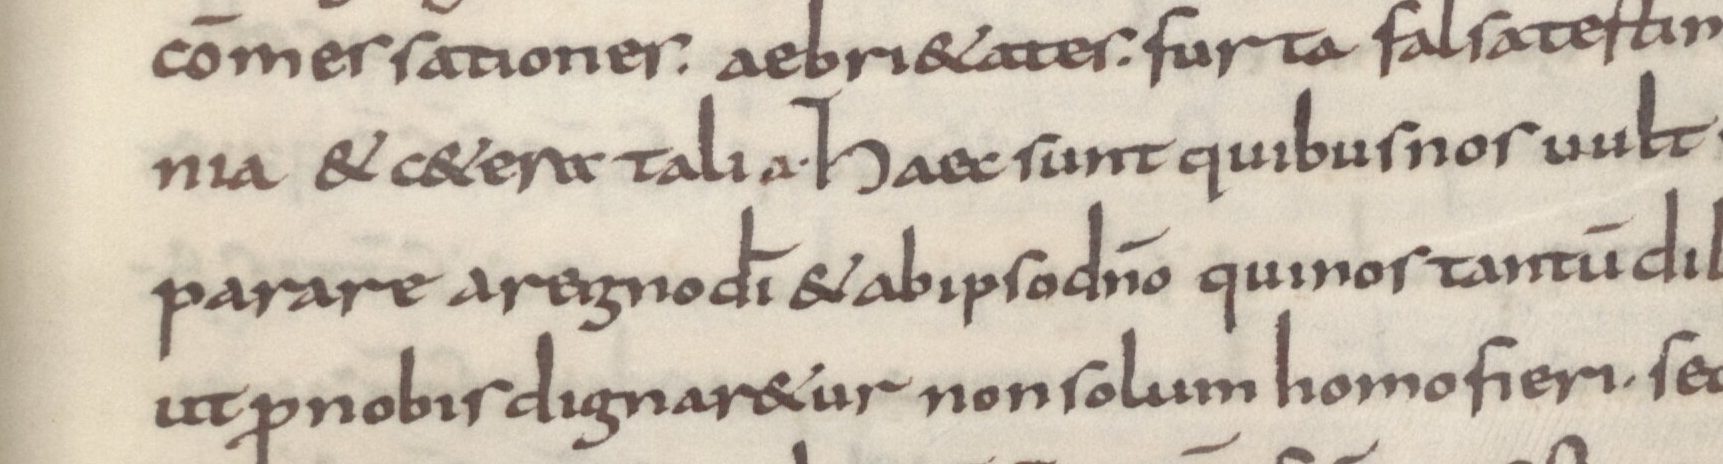 cōmessationes. aebri&ates. furta falsatestim
nia & c&era talia. Haec sunt quibusnos uult
parare aregnodī & abipsodn̄o quinos tantū dil
ut ꝓnobis dignar&ur non solum homofieri. sed